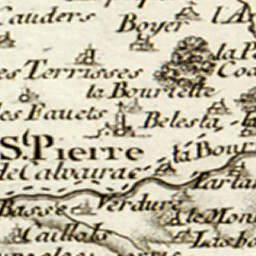 Cauders
Boyer
la
es Terrisses
la Bouriette
es Fauets
Belesta
St. Pierre
la Bour
de Calvairac
Tartan
Basse
Verdure
le Mon
Caillols
Lasbo